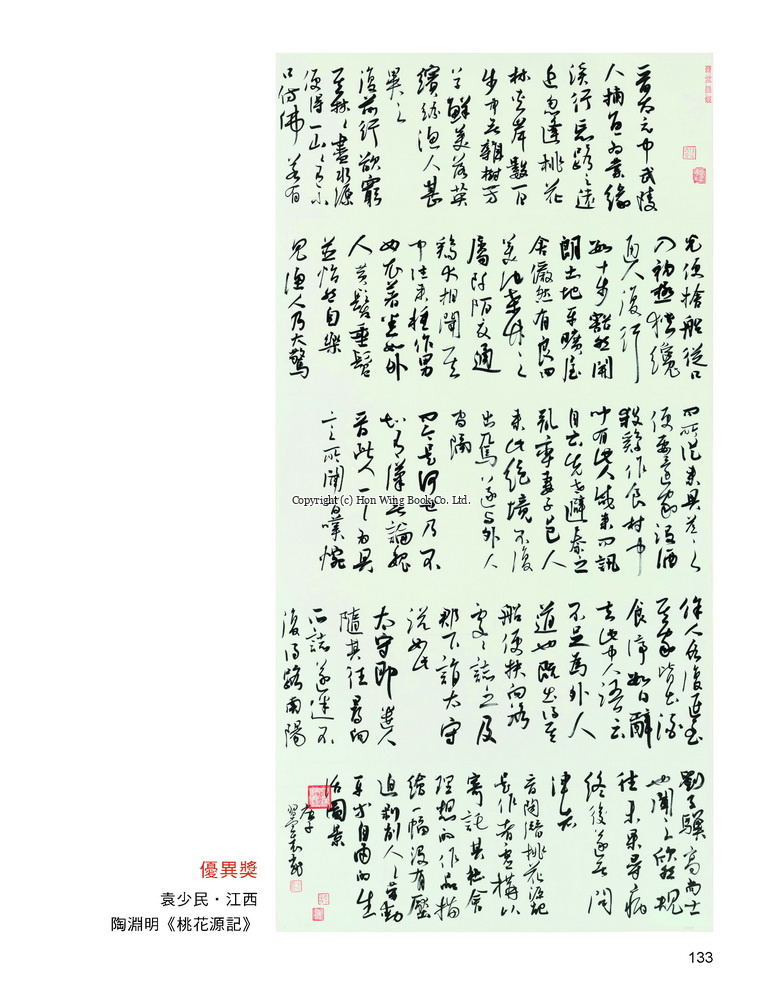 晉太元中武陵
人捕魚為業緣
溪行忘路之遠
近忽逢桃花
林夾岸數百
步中無雜樹芳
草鮮美落英
繽紛漁人甚
異之
復前行欲窮
其林林盡水源
便得一山山有小
口仿佛若有
光便捨船從口
入初極狹纔
通人復行
數十步豁然開
朗土地平曠屋
舍儼然有良田
美池桑竹之
屬阡陌交通
鷄犬相聞其
中往來種作男
女衣著悉如外
人黃髮垂髫
並怡然自樂
見漁人乃大驚
問所從來具答之
便要還家設酒
殺雞作食村中
聞有此人咸來問訊
自云先世避秦之
亂率妻子邑人
來此絕境不復
出焉遂與外人
間隔
問今是何世乃不
知有漢無論魏
晉此人一一為具
言所聞皆嘆惋
餘人各復延至
其家皆出酒
食停數日辭
去此中人語云
不足為外人
道也既出得其
船便扶向路
處處誌之及
郡下詣太守
說如此
太守即遣人
隨其往尋向
所誌遂迷不
復得路南陽
劉子驥高尚士
也聞之欣然規
往未果尋病
終後遂無問
津者
晉陶潛桃花源記
是作者虛構以
寄託其社會
理想的作品描
繪一幅沒有壓
迫剝削人人勞動
平等自由的生
活圖景
庚子
Copyright (c) Hon Wing Book Co. Ltd.
優異獎
袁少民・江西
陶淵明《桃花源記》
133